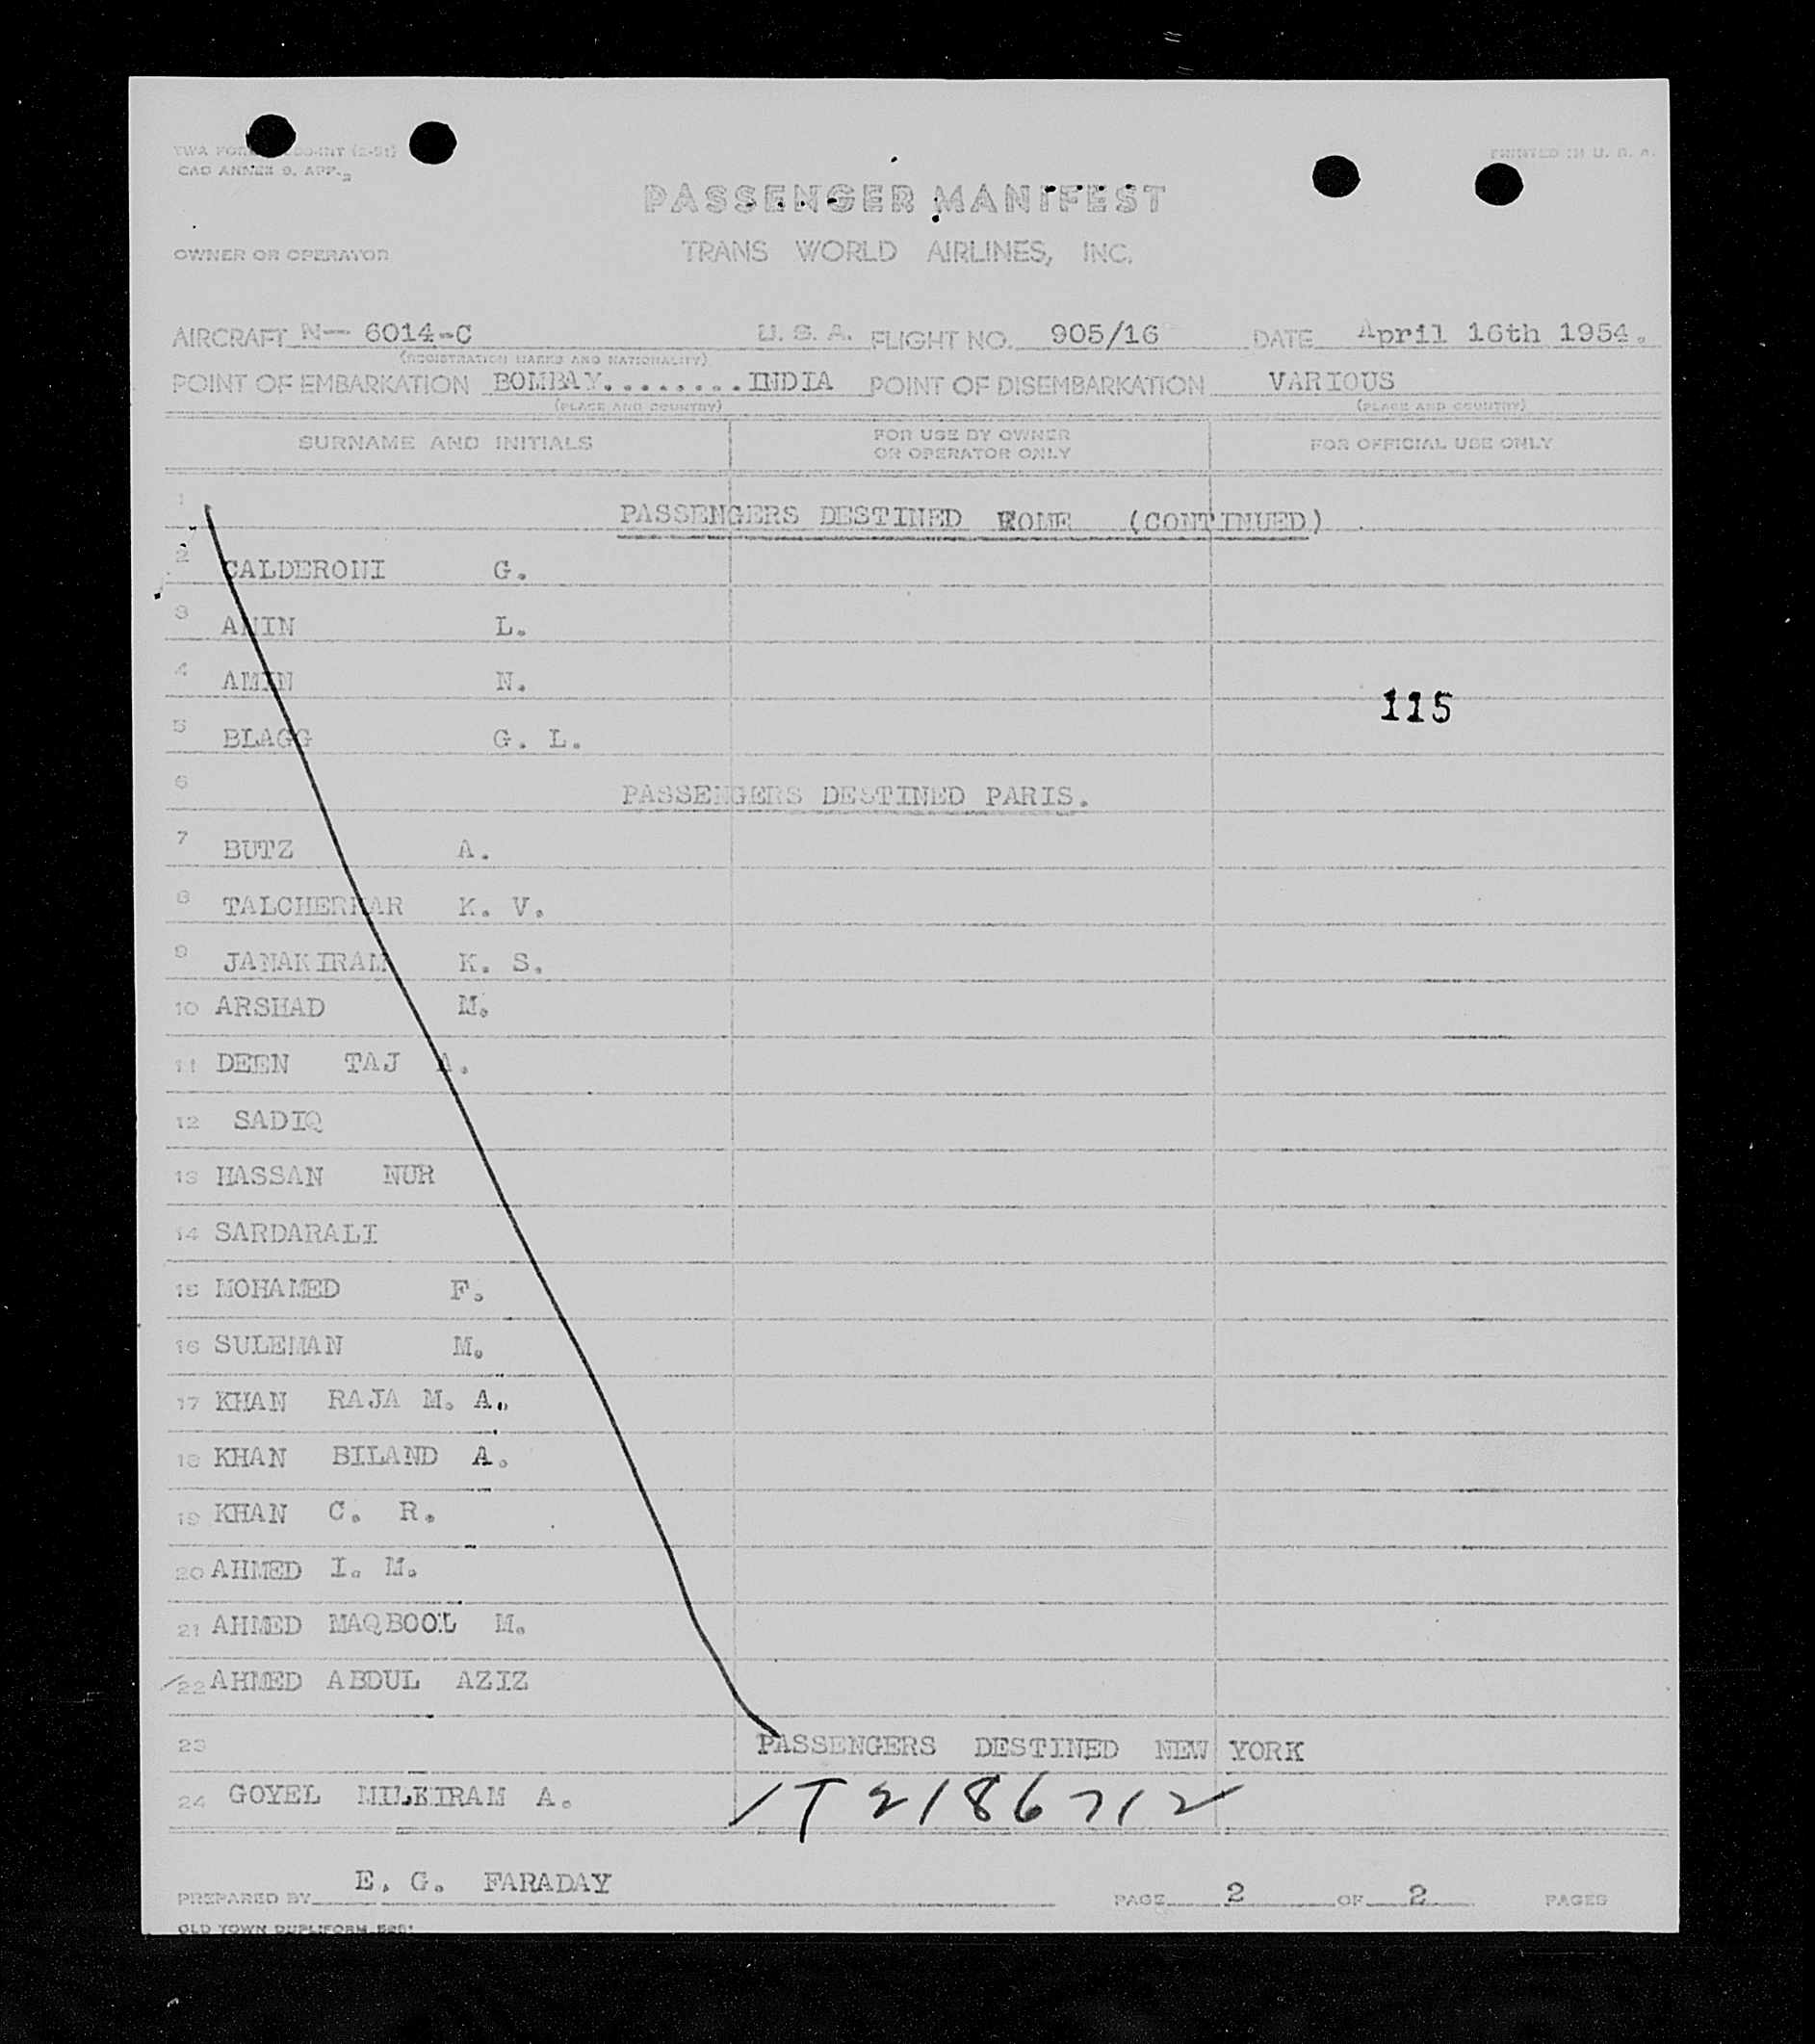 PRINTED IN U. S. A.
PASSENGER MANIFEST
OWNER OR OPERATOR TRANS WORLD AIRLINES, INC.
AIRCRAFT N- 6014-C U. S. A. FLIGHT NO. 905/16 DATE April 16th 1954.
(REGISTRATION MARKS AND NATIONALITY)
POINT OF EMBARKATION BOMBAY........INDIA POINT OF DISEMBARKATION VARIOUS
(PLACE AND COUNTRY) (PLACE AND COUNTRY)
SURNAME AND INITIALS FOR USE BY OWNER OR OPERATOR ONLY FOR OFFICIAL USE ONLY
1 PASSENGERS DESTINED ROME (CONTINUED)
2 CALDERONI G.
3 AMIN L.
4 AMIN N.
115
5 BLAGG G. L.
6 PASSENGERS DESTINED PARIS.
7 BUTZ A.
8 TALCHERKAR K. V.
9 JANAKIRAM K. S.
10 ARSHAD M.
11 DEEN TAJ A.
12 SADIQ
13 HASSAN NUR
14 SARDARALI
15 MOHAMED F.
16 SULEMAN M.
17 KHAN RAJA M. A.
18 KHAN BILAND A.
19 KHAN C. R.
20 AHMED I. M.
21 AHMED MAQBOOL M.
22 AHMED ABDUL AZIZ
23 PASSENGERS DESTINED NEW YORK
24 GOYEL MILKIRAM A. T2186712
PREPARED BY E. G. FARADAY PAGE 2 OF 2 PAGES
OLD TOWN DUPLIFORM